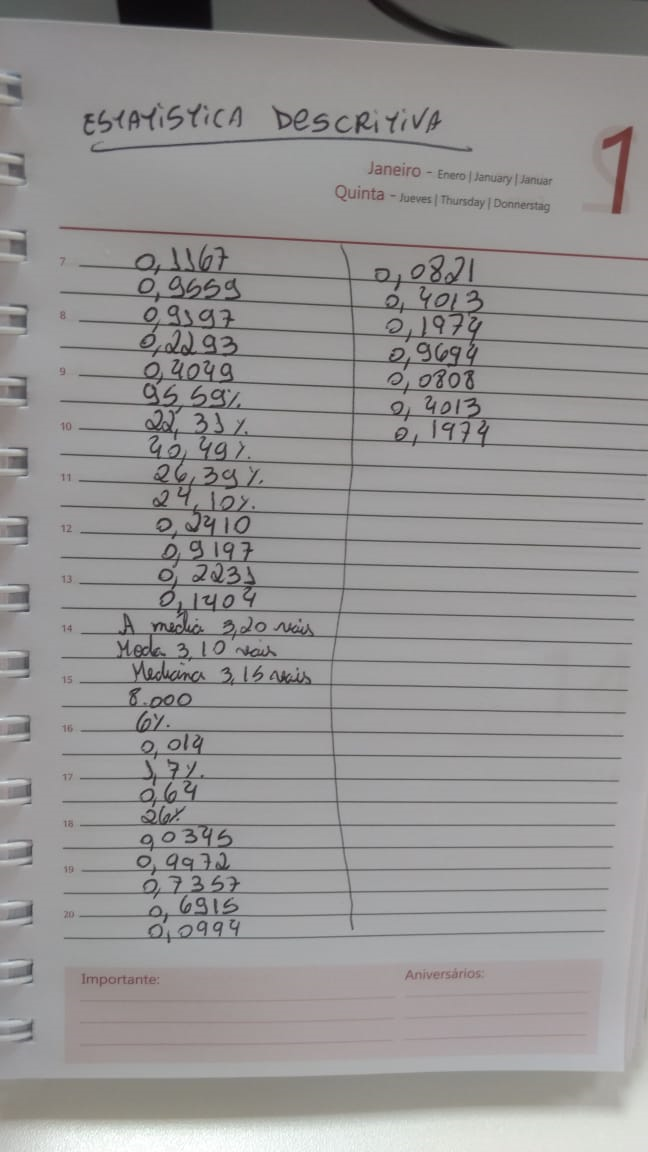 ESTATÍSTICA DESCRITIVA
Janeiro - Enero | January | Januar
Quinta - Jueves | Thursday | Donnerstag
1
7 0,1167
0,9559
8 0,9197
0,2293
9 0,4049
95,59%
10 22,31%
40,49%
11 26,39%
24,10%
12 0,2410
0,9197
13 0,2231
0,1404
14 A média 3,20 reais
Moda 3,10 reais
15 Mediana 3,15 reais
8.000
16 6%
0,014
17 1,7%
0,64
18 26%
0,0345
19 0,9972
0,7357
20 0,6915
0,0994
0,0821
0,4013
0,1974
0,9694
0,0808
0,4013
0,1974
Importante:
Aniversários: